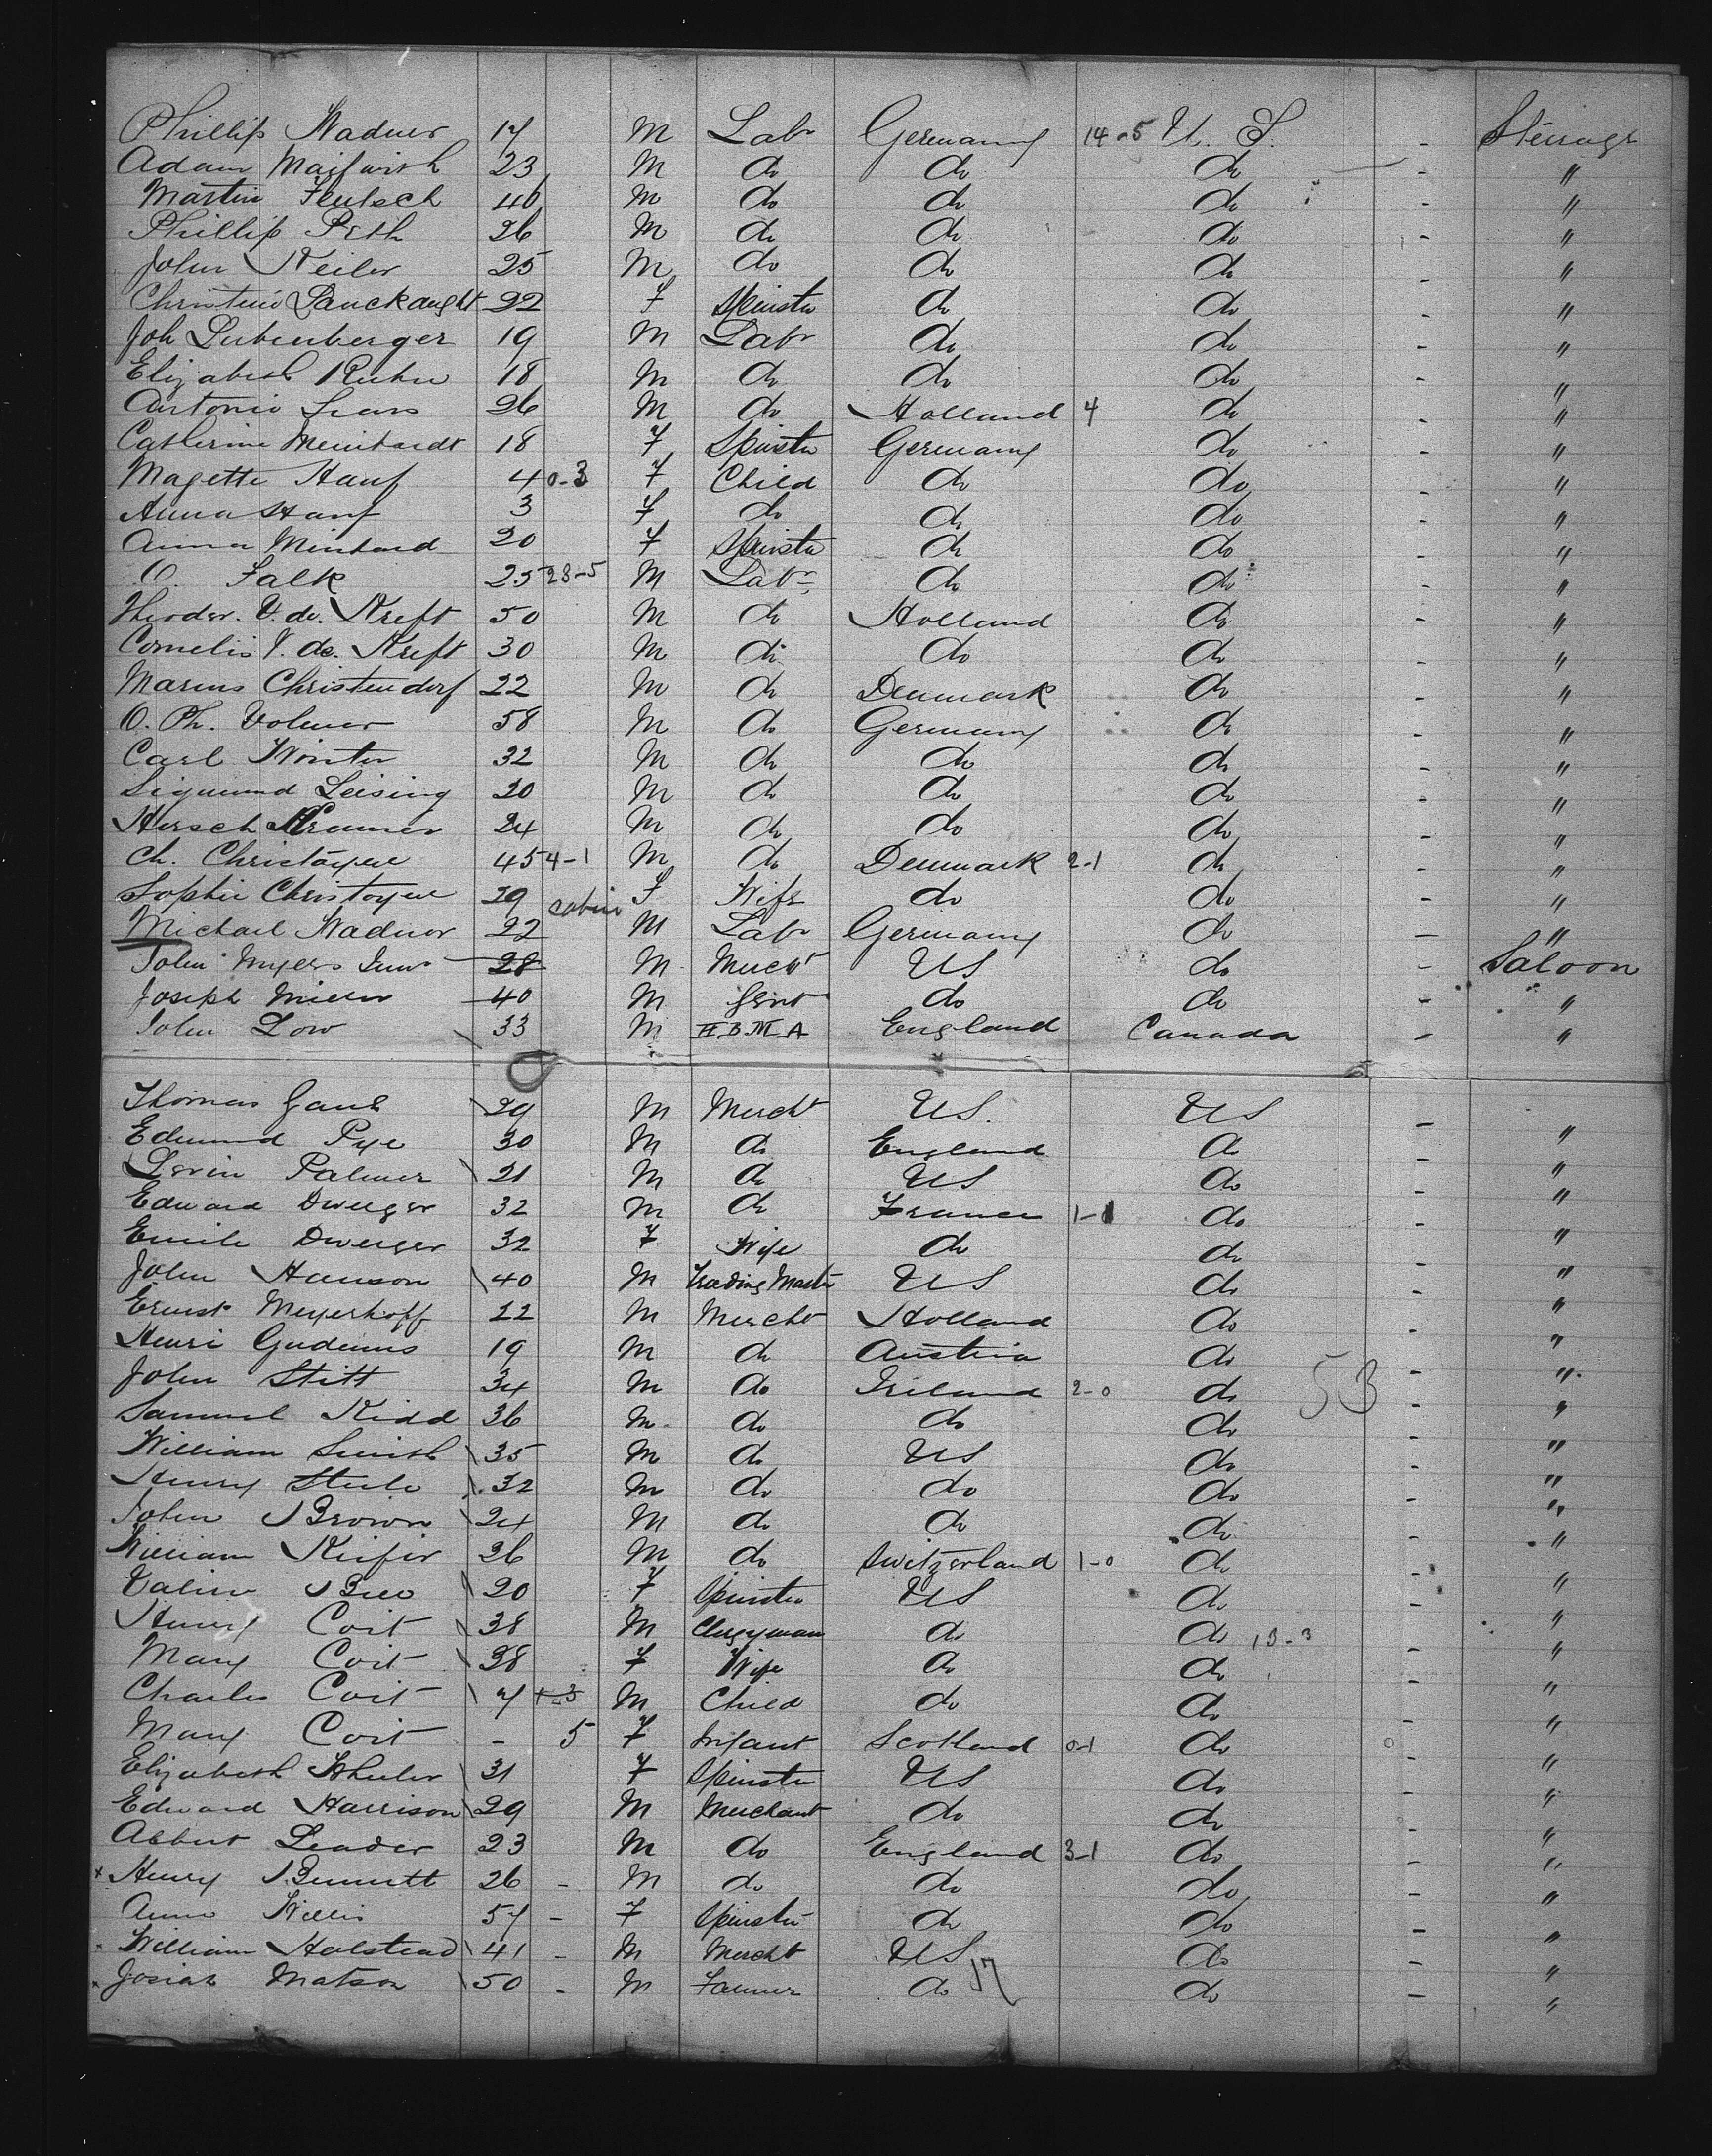 Phillip Wadner 17 M Labr Germany 14-5 U. S. - Steerage
Adam 23 M do do do - "
Martin Feutsch 40 M do do do - "
Phillip Peth 26 M do do do - "
John Keiler 25 M do do do - "
Christine Lanckaught 22 F Spinster do do - "
Joh Lubenberger 19 M Labr do do - "
Elizabeth Kuhn 18 M do do do - "
Antonio 26 M do Holland 4 do - "
Catherine Meinhardt 18 F Spinster Germany do - "
Magette Hauf 4 0-3 F Child do do - "
Anna Hauf 3 F do do do - "
Anna Minhard 20 F Spinster do do - "
O. Falk 25 28-5 M Labr do do - "
Theodor. V. de. Kreft 50 M do Holland do - "
Cornelis V. de. Kreft 30 M do do do - "
Marius Christendorf 22 M do Denmark do - "
O. Ph. Volmer 58 M do Germany do - "
Carl Winter 32 M do do do - "
Sigmund Leising 20 M do do do - "
Hersch Kramer 24 M do do do - "
Ch. Christoyere 45 4-1 M do Denmark 2-1 do - "
Sophie Christoyere 29 cabin F Wife do do - "
Michael Wadner 22 M Labr Germany do - "
John Myers Junr 28 M Mercht US do - Saloon
Joseph Miller 40 M Gent do do - "
John Low 33 M H.B.M.A England Canada - "
Thomas Gaul 29 M Mercht US. US - "
Edmund Pye 30 M do England do - "
Levin Palmer 21 M do US do - "
Edward Dweiger 32 M do France 1-1 do - "
Emile Dweiger 32 F Wife do do - "
John Hanson 40 M Trading Master US do - "
Ernst Meyerhoff 22 M Mercht Holland do - "
Henri Gudenus 19 M do Austria do - "
John Stitt 34 M do Ireland 2-0 do 53 - "
Samuel Kidd 36 M do do do - "
William Smith 35 M do US do - "
Henry Steele 32 M do do do - "
John Brown 24 M do do do - "
William Kiefer 26 M do Switzerland 1-0 do - "
20 F Spinster US do - "
Henry Coit 38 M Clergyman do do 13-3 - "
Mary Coit 38 F Wife do do - "
Charles Coit 7 1-3 M Child do do - "
Mary Coit - 5 F Infant Scotland 0-1 do - "
Elizabeth Wheeler 31 F Spinster US do - "
Edward Harrison 29 M Merchant do do - "
Albert Leader 23 M do England 3-1 do - "
x Henry Bennett 26 - M do do do - "
Anne Willis 57 - F Spinster do do - "
x William Halstead 41 - M Mercht US do - "
x Josiah Matson 50 - M Farmer do 17 do - "